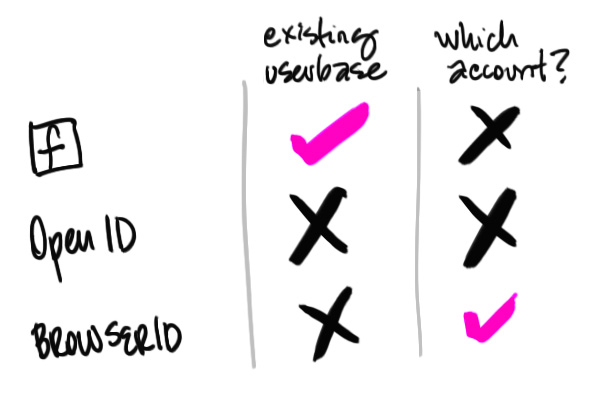 existing
userbase
which
account?
f
Open ID
BROWSERID